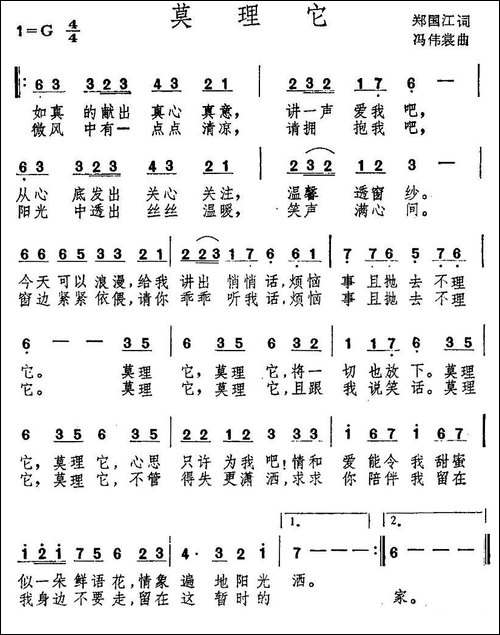 莫理它
1=G 4/4
郑国江词
冯伟裳曲
63 323 43 21 232 17 6 —
如真 的献出 真心 真意, 讲一声 爱我 吧,
微风 中有一 点点 清凉, 请拥 抱我 吧,
63 323 43 21 232 12 3 —
从心 底发出 关心 关注, 温馨 透窗 纱。
阳光 中透出 丝丝 温暖, 笑声 满心 间。
66 65 33 21 223 17 6 61 7 7 65 5 76
今天 可以 浪漫,给我 讲出 悄悄 话,烦恼 事 且抛 去 不理
窗边 紧紧 依偎,请你 乖乖 听我 话,烦恼 事 且抛 去 不理
6 — — 35 6 35 6 32 1 17 6· 35
它。 莫理 它,莫理 它,将一 切 也放 下。莫理
它。 莫理 它,莫理 它,且跟 我 说笑 话。莫理
6 35 6 35 22 12 3 33 i 67 i 67
它,莫理 它,心思 只许 为我 吧!情和 爱 能令 我 甜蜜
它,莫理 它,不管 得失 更潇 洒,求求 你 陪伴 我 留在
i2i 75 6 23 4· 32i 7 — — — 6 —
1. 2.
似一朵 鲜语 花,情象 遍 地阳光 洒。
我身边 不要 走,留在 这 暂时的 家。